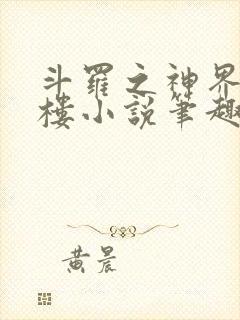 斗羅之神界
樓小說筆趣
黄晨